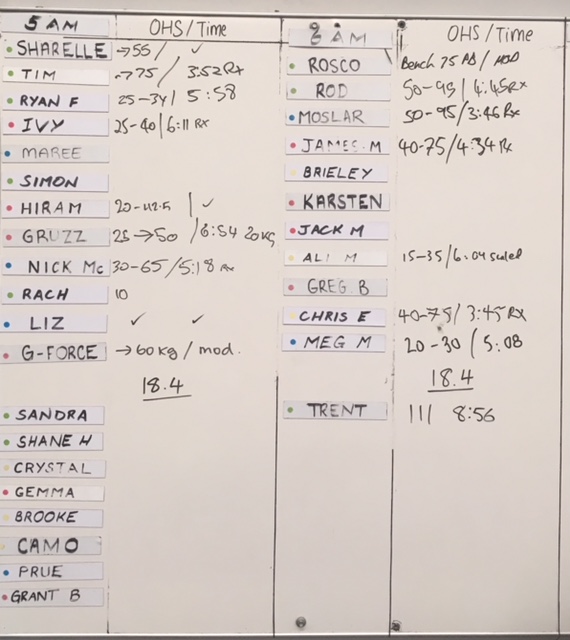 5 AM OHS/Time
SHARELLE →55/ ✓
TIM →75/ 3:52 Rx
RYAN F 25-34/ 5:58
IVY 25-40/6:11 Rx
MAREE
SIMON
HIRAM 20-42.5 / ✓
GRUZZ 25→50 /6:54 20kg
NICK Mc 30-65/5:18 Rx
RACH 10
LIZ ✓ ✓
G-FORCE →60kg/mod.
18.4
SANDRA
SHANE H
CRYSTAL
GEMMA
BROOKE
CAMO
PRUE
GRANT B
AM OHS/Time
ROSCO Bench 75 / MOD
ROD 50-95/ 4:45 Rx
MOSLAR 50-95/3:46 Rx
JAMES.M 40-75/4:34 Rx
BRIELEY
KARSTEN
JACK M
ALI M 15-35/6:04 scaled
GREG.B
CHRIS E 40-75/ 3:45 RX
MEG M 20-30 / 5:08
18.4
TRENT 111 8:56